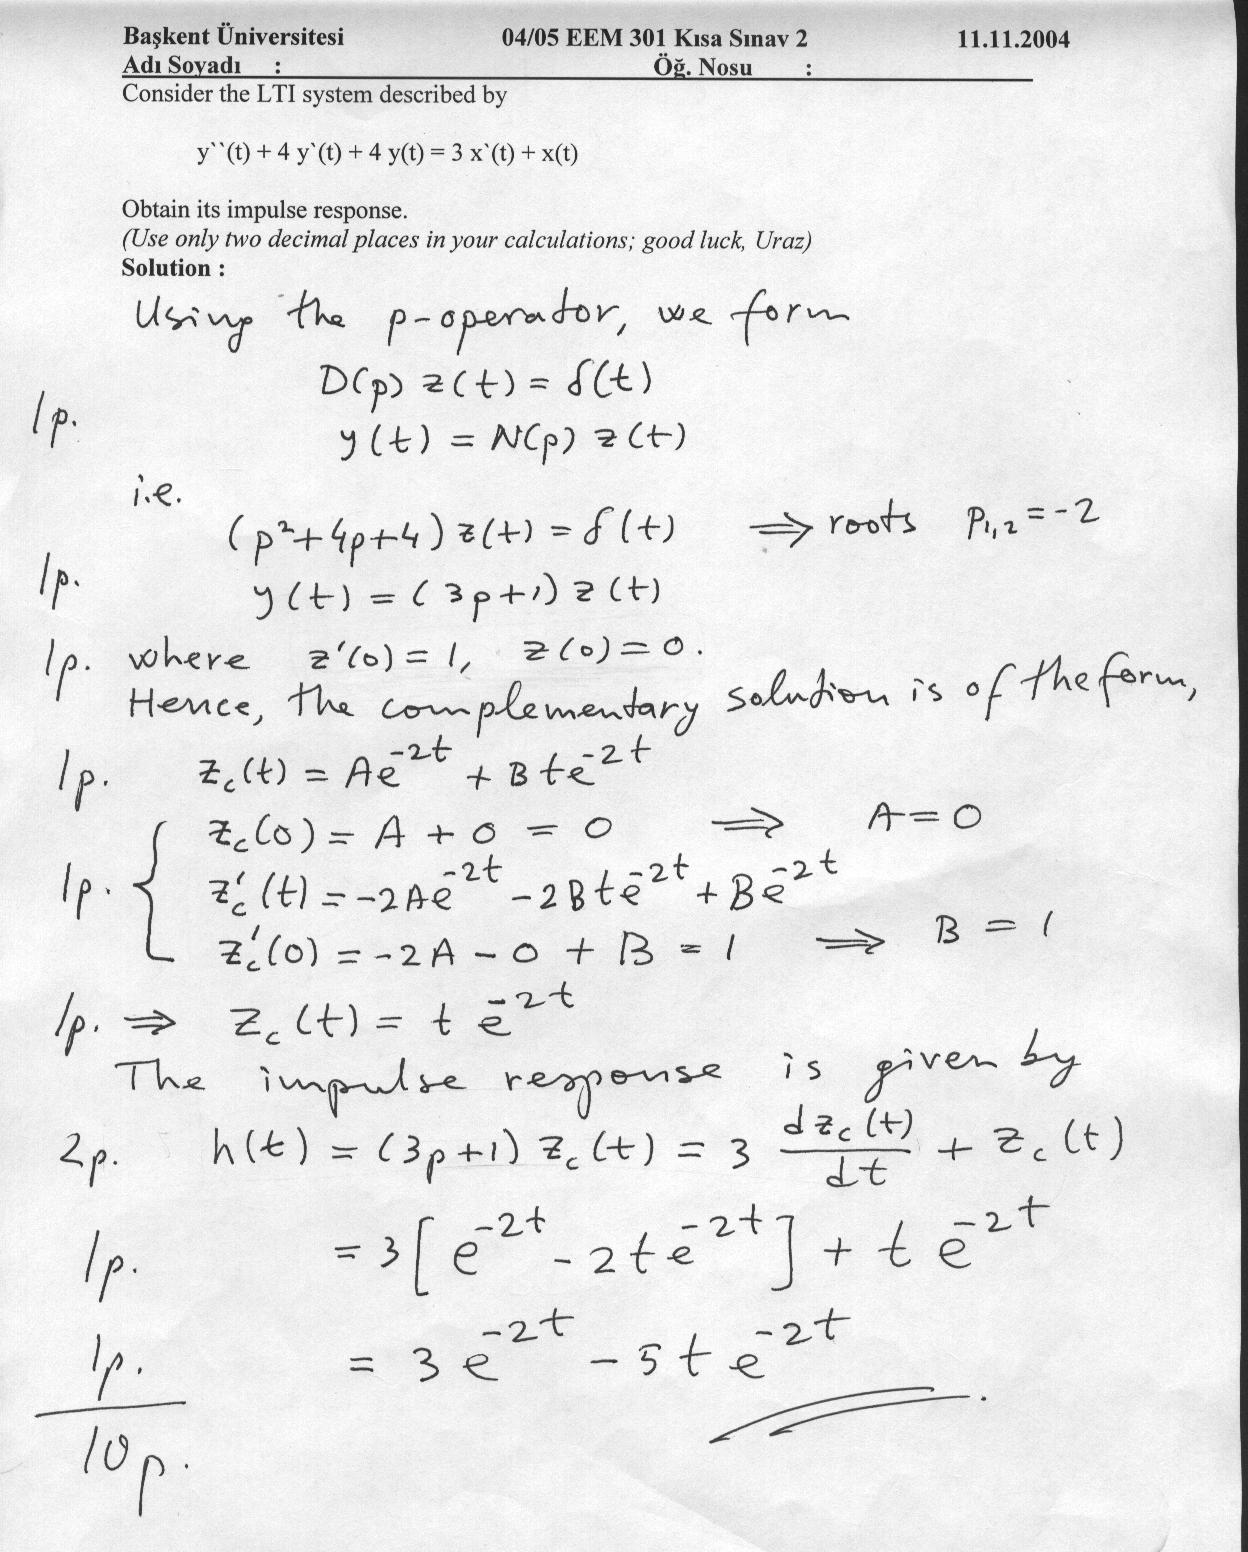 Başkent Üniversitesi 04/05 EEM 301 Kısa Sınav 2 11.11.2004
Adı Soyadı : Öğ. Nosu :
Consider the LTI system described by
y``(t) + 4 y`(t) + 4 y(t) = 3 x`(t) + x(t)
Obtain its impulse response.
(Use only two decimal places in your calculations; good luck, Uraz)
Solution :
Using the p-operator, we form
D(p) z(t) = δ(t)
1p.
y(t) = N(p) z(t)
i.e.
(p²+4p+4) z(t) = δ(t) ⇒ roots p₁,₂ = -2
1p.
y(t) = (3p+1) z(t)
1p. where z'(0) = 1, z(0) = 0.
Hence, the complementary solution is of the form,
1p. z_c(t) = Ae^-2t + Bte^-2t
z_c(0) = A + 0 = 0 ⇒ A = 0
1p. { z'_c(t) = -2Ae^-2t - 2Bte^-2t + Be^-2t
z'_c(0) = -2A - 0 + B = 1 ⇒ B = 1
1p. ⇒ z_c(t) = t e^-2t
The impulse response is given by
2p. h(t) = (3p+1) z_c(t) = 3 dz_c(t)/dt + z_c(t)
1p. = 3[e^-2t - 2te^-2t] + t e^-2t
1p. = 3e^-2t - 5te^-2t.
10p.